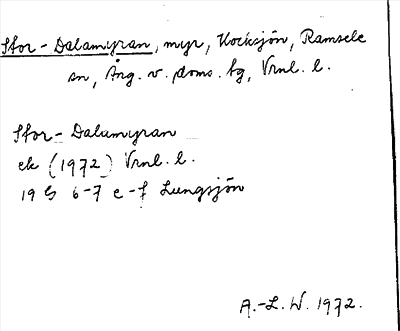 Stor-Dalamyran, myr, Kocksjön, Ramsele
sn, Ång. v. doms. tg, Vrnl. l.
Stor-Dalamyran
ek (1972) Vrnl. l.
19 G 6-7 e-f Lungsjön
A.-L. W. 1972.